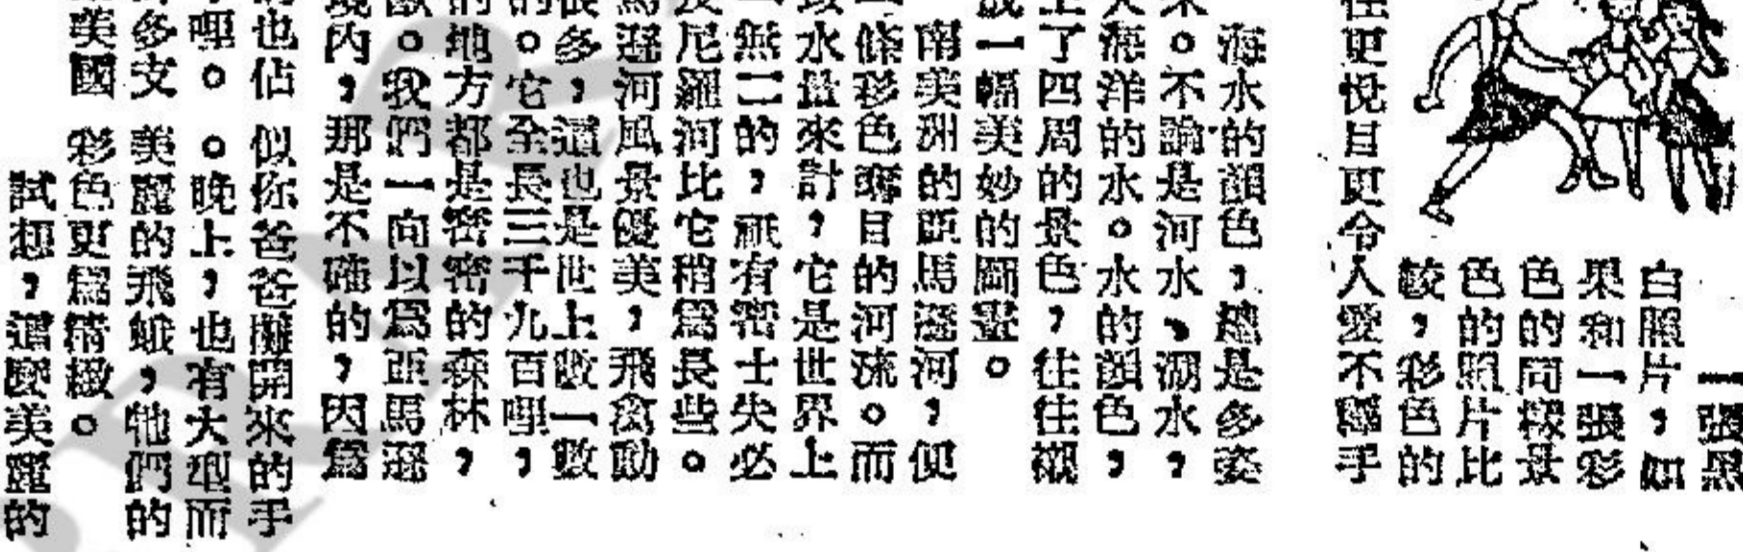 一張黑
白照片，如
果和一張彩
色的同樣景
色的照片比
較，彩色的
往更悅目更令人愛不釋手
海水的顔色，總是多姿
。不論是河水、湖水，
海洋的水。水的顔色，
上了四周的景色，往往襯
成一幅美妙的圖畫。
南美洲的亞馬遜河，便
一條彩色奪目的河流。而
以水量來計，它是世界上
一無二的，祇有密士失必
尼羅河比它稍爲長些。
馬遜河風景優美，飛禽動
很多，這也是世上數一數
的。它全長三千九百哩，
的地方都是密密的森林，
獸。我們一向以爲亞馬遜
境內，那是不確的，因爲
也佔
哩。
多支
美國
似你爸爸攤開來的手
。晚上，也有大型而
美麗的飛蛾，牠們的
彩色更爲精緻。
試想，這麽美麗的